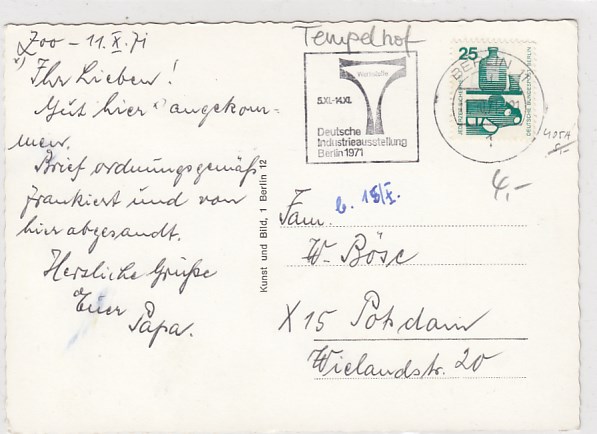 Zoo - 11.X.71
x) Ihr Lieben!
Gut hier x) angekom-
men.
Brief ordnungsgemäß
frankiert und von
hier abgesandt.
Herzliche Grüße
Euer
Papa.
Kunst und Bild, 1 Berlin 12
Tempelhof
Werkstoffe
5.XI.-14.XI.
Deutsche
Industrieausstellung
Berlin 1971
BERLIN
1
25
DEUTSCHE BUNDESPOST BERLIN
4,-
b. 15/X.
Fam.
W. Böse
X15 Potsdam
Wielandstr. 20